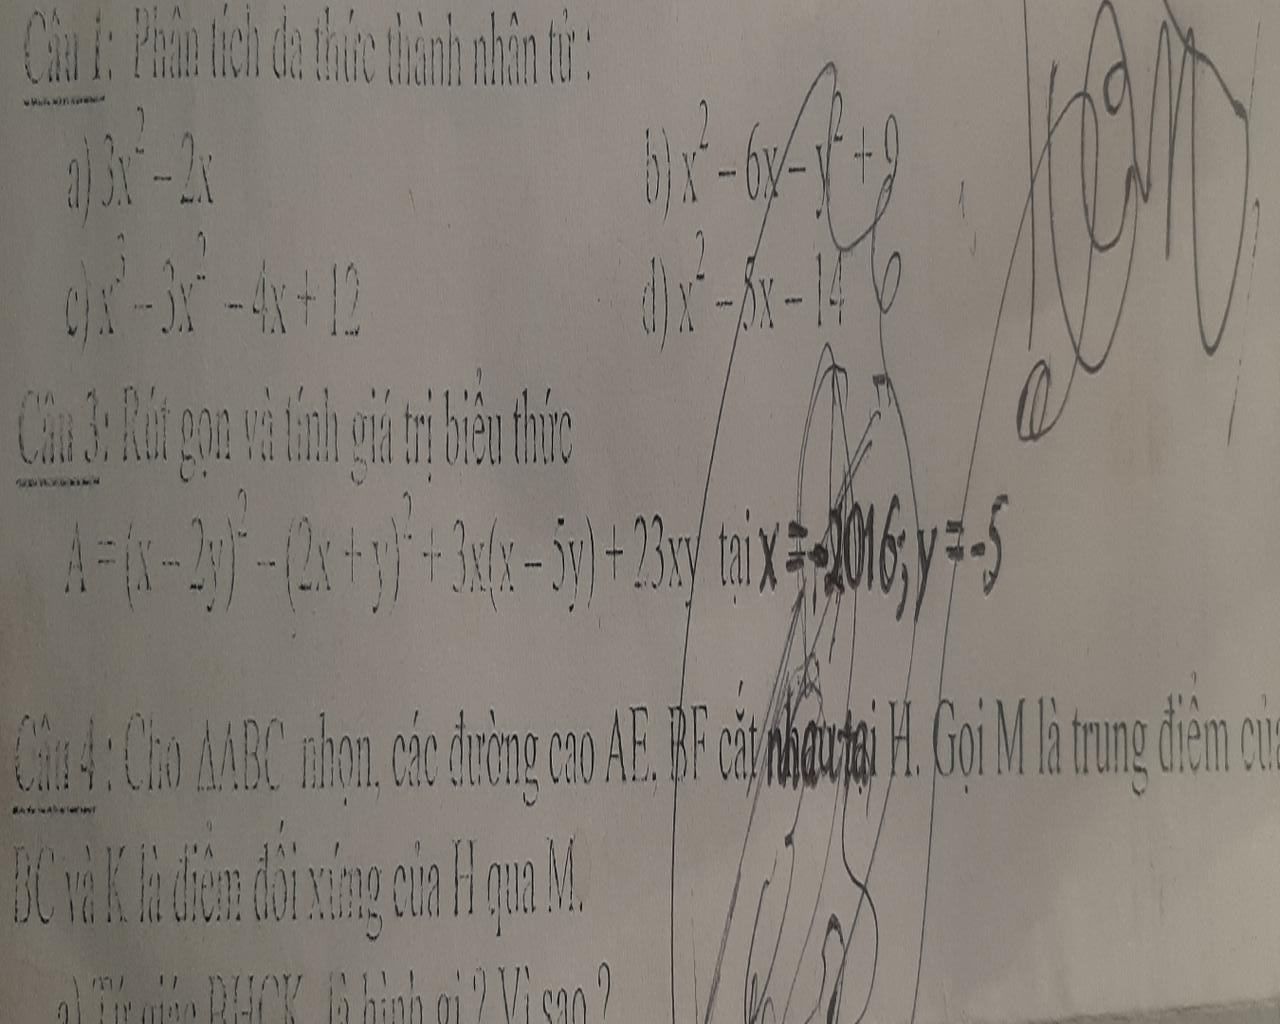 Câu 1: Phân tích đa thức thành nhân tử :
a) 3x² – 2x b) x² – 6x – y² + 9
c) x³ – 3x² – 4x + 12 d) x² – 5x – 14
Câu 3: Rút gọn và tính giá trị biểu thức
A = (x – 2y)² – (2x + y)² + 3x(x – 5y) + 23xy tại x = -2016; y = -5
Câu 4 : Cho ΔABC nhọn, các đường cao AE, BF cắt nhau tại H. Gọi M là trung điểm của
BC và K là điểm đối xứng của H qua M.
a) Tứ giác BHCK là hình gì ? Vì sao ?